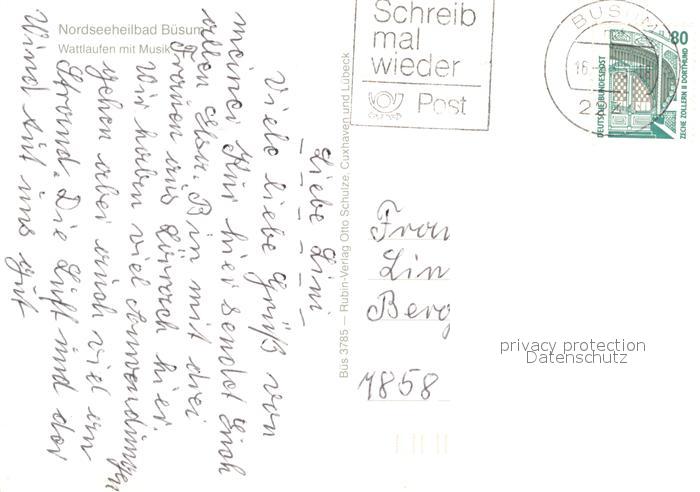 Nordseeheilbad Büsum
Wattlaufen mit Musik
Schreib
mal
wieder
Post
BÜSUM
16.
80
DEUTSCHE BUNDESPOST
ZECHE ZOLLERN II DORTMUND
Büs 3785 — Rubin-Verlag Otto Schulze, Cuxhaven und Lübeck
Liebe Lini
Viele liebe Grüß von
meiner Kur hier sendet Euch
allen Elsa. Bin mit drei
Frauen aus Lörrach hier.
Wir haben viel Anwendungen
gehen aber auch viel an
Strand. Die Luft und der
Wind tut uns gut
Frau
Lin
Berg
7858
privacy protection
Datenschutz